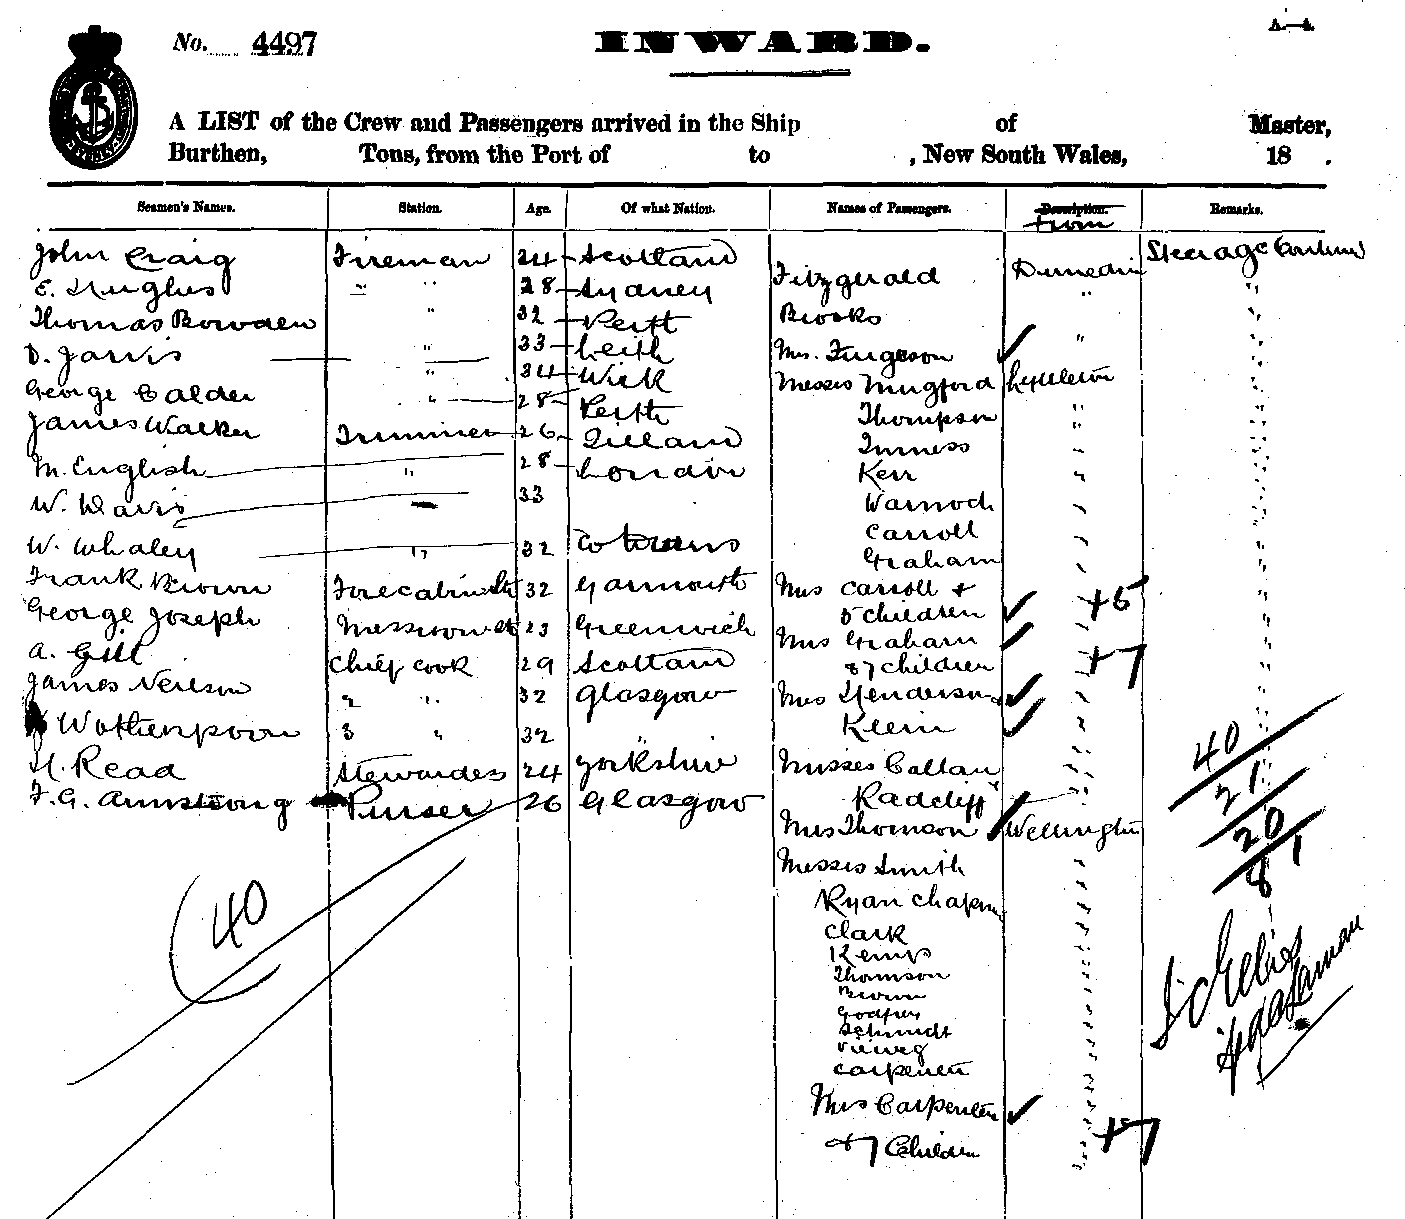 No. 4497
INWARD.
A LIST of the Crew and Passengers arrived in the Ship of Master,
Burthen, Tons, from the Port of to , New South Wales, 18 .
Seamen's Names. Station. Age. Of what Nation. Names of Passengers. Description. Remarks.
from
John Craig Fireman 24 Scotland
E. Hughes " " 28 Sydney
Thomas Bowden " 32 Perth
D. Jarvis " 33 Leith
George Calder " 34 Wick
James Walker " 28 Perth
Trimmer 26
M. English " 28 London
W. Davis 33
W. Whaley " 32 Co
Frank Brown Forecabin 32 Yarmouth
George Joseph Messroom 23 Greenwich
A. Gill Chief cook 29 Scotland
James Neilson 2 " 32 Glasgow
Wotherspoon 3 " 32 "
H. Read Stewardess 24 Yorkshire
F. G. Armstrong Purser 26 Glasgow
40
Fitzgerald Dunedin Steerage
Brooks " "
Mrs. Furgeson "
Messrs Mugford Lyttleton
Thompson "
Inness "
Kerr "
Warnock "
Carroll "
Graham "
Mrs Carroll &
5 children +5
Mrs Graham
& 7 children +7
Mrs Henderson "
Klein "
Misses Callan
Radcliff "
Mrs Thomson Wellington
Messrs Smith "
Ryan Chapman "
Clark "
Kemp "
Thomson "
Brown "
Godfrey "
Schmidt "
Vieweg "
Carpenter "
Mrs Carpenter "
& 7 Children +7
40
21
20
81